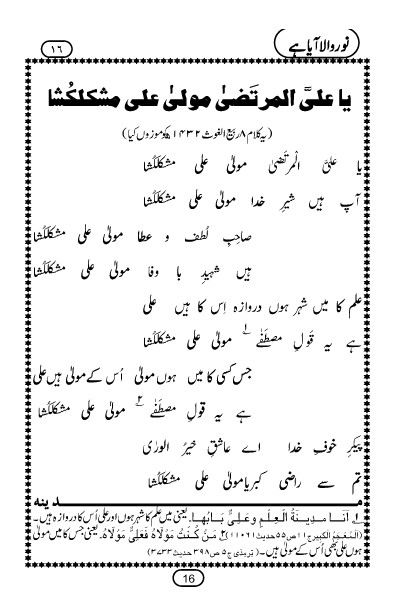 نور والا آیا ہے
۱۶
یا علیَّ المرتَضیٰ مولیٰ علی مشکلکُشا
(یہ کلام ۸ ربیع الغوث ۱۴۳۲ھ کو موزوں کیا)
یا علیَّ الْمرتَضیٰ مولیٰ علی مشکلکُشا
آپ ہیں شیرِ خدا مولیٰ علی مشکلکُشا
صاحبِ لُطف و عطا مولیٰ علی مشکلکُشا
ہیں شہیدِ با وفا مولیٰ علی مشکلکُشا
علم کا میں شہر ہوں دروازہ اِس کا ہیں علی
ہے یہ قولِ مصطَفٰے ۱ مولیٰ علی مشکلکُشا
جس کسی کا میں ہوں مولیٰ اُس کے مولیٰ ہیں علی
ہے یہ قولِ مصطَفٰے ۲ مولیٰ علی مشکلکُشا
پیکرِ خوفِ خدا اے عاشقِ خیرُ الورٰی
تم سے راضی کبریا مولیٰ علی مشکلکُشا
مدینہ
۱ اَنَا مَدِینَۃُ الْعِلْمِ وَعَلِیٌّ بَابُھَا۔ یعنی میں علم کا شہر ہوں اور علی اُس کا دروازہ ہیں۔
(اَلْمُعْجَمُ الْکبِیر ج۱۱ ص۵۵ حدیث ۱۱۰۶۱) ۲ مَنْ کُنْتُ مَوْلَاہُ فَعَلِیٌّ مَوْلَاہُ۔ یعنی جس کا میں مولیٰ
ہوں علی بھی اُس کے مولیٰ ہیں۔ (ترمذی ج۵ ص۳۹۸ حدیث ۳۷۳۳)
16